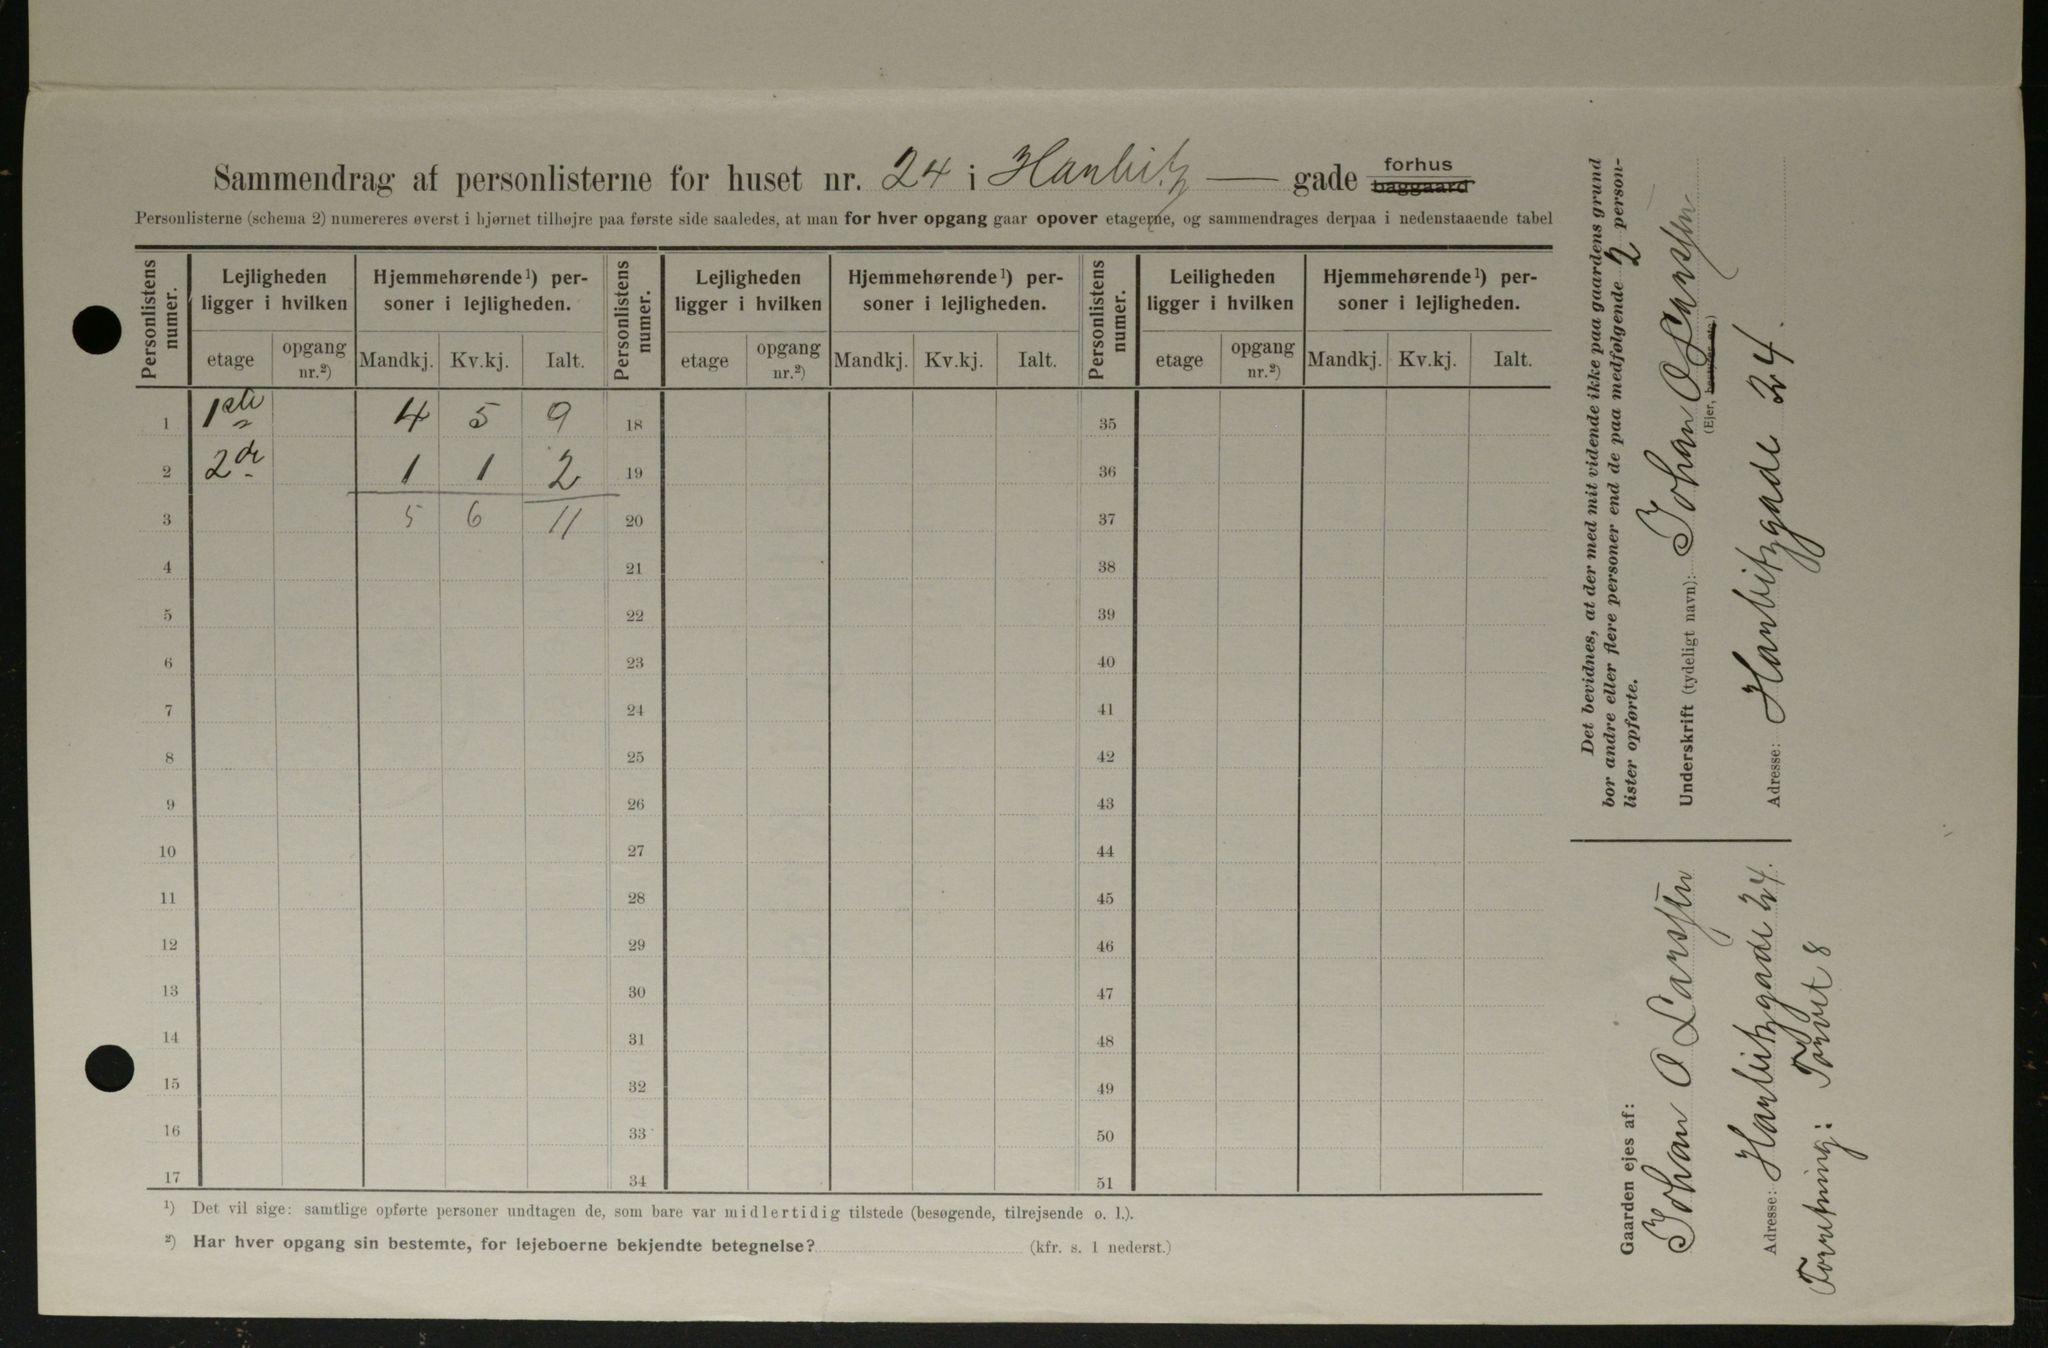 Sammendrag af personlisterne for huset nr. 24 i Haubitz — gade forhus baggaard
Personlisterne (schema 2) numereres øverst i hjørnet tilhøjre paa første side saaledes, at man for hver opgang gaar opover etagerne, og sammendrages derpaa i nedenstaaende tabel
Personlistens numer. Lejligheden ligger i hvilken Hjemmehørende¹) personer i lejligheden. Personlistens numer. Lejligheden ligger i hvilken Hjemmehørende¹) personer i lejligheden. Personlistens numer. Leiligheden ligger i hvilken Hjemmehørende¹) personer i lejligheden.
etage opgang nr.²) Mandkj. Kv.kj. Ialt. etage opgang nr.²) Mandkj. Kv.kj. Ialt. etage opgang nr.²) Mandkj. Kv.kj. Ialt.
1 1ste 4 5 9 18 35
2 2de 1 1 2 19 36
3 5 6 11 20 37
4 21 38
5 22 39
6 23 40
7 24 41
8 25 42
9 26 43
10 27 44
11 28 45
12 29 46
13 30 47
14 31 48
15 32 49
16 33 50
17 34 51
¹) Det vil sige: samtlige opførte personer undtagen de, som bare var midlertidig tilstede (besøgende, tilrejsende o. l.).
²) Har hver opgang sin bestemte, for lejeboerne bekjendte betegnelse? (kfr. s. 1 nederst.)
Det bevidnes, at der med mit vidende ikke paa gaardens grund
bor andre eller flere personer end de paa medfølgende 2 person-
lister opførte.
Underskrift (tydeligt navn): Johan O Larssen
(Ejer, bestyrer etc.)
Adresse: Haubitzgade 24.
Gaarden ejes af:
Johan O Larssen
Adresse: Haubitzgade 24.
Forretning: Torvet 8